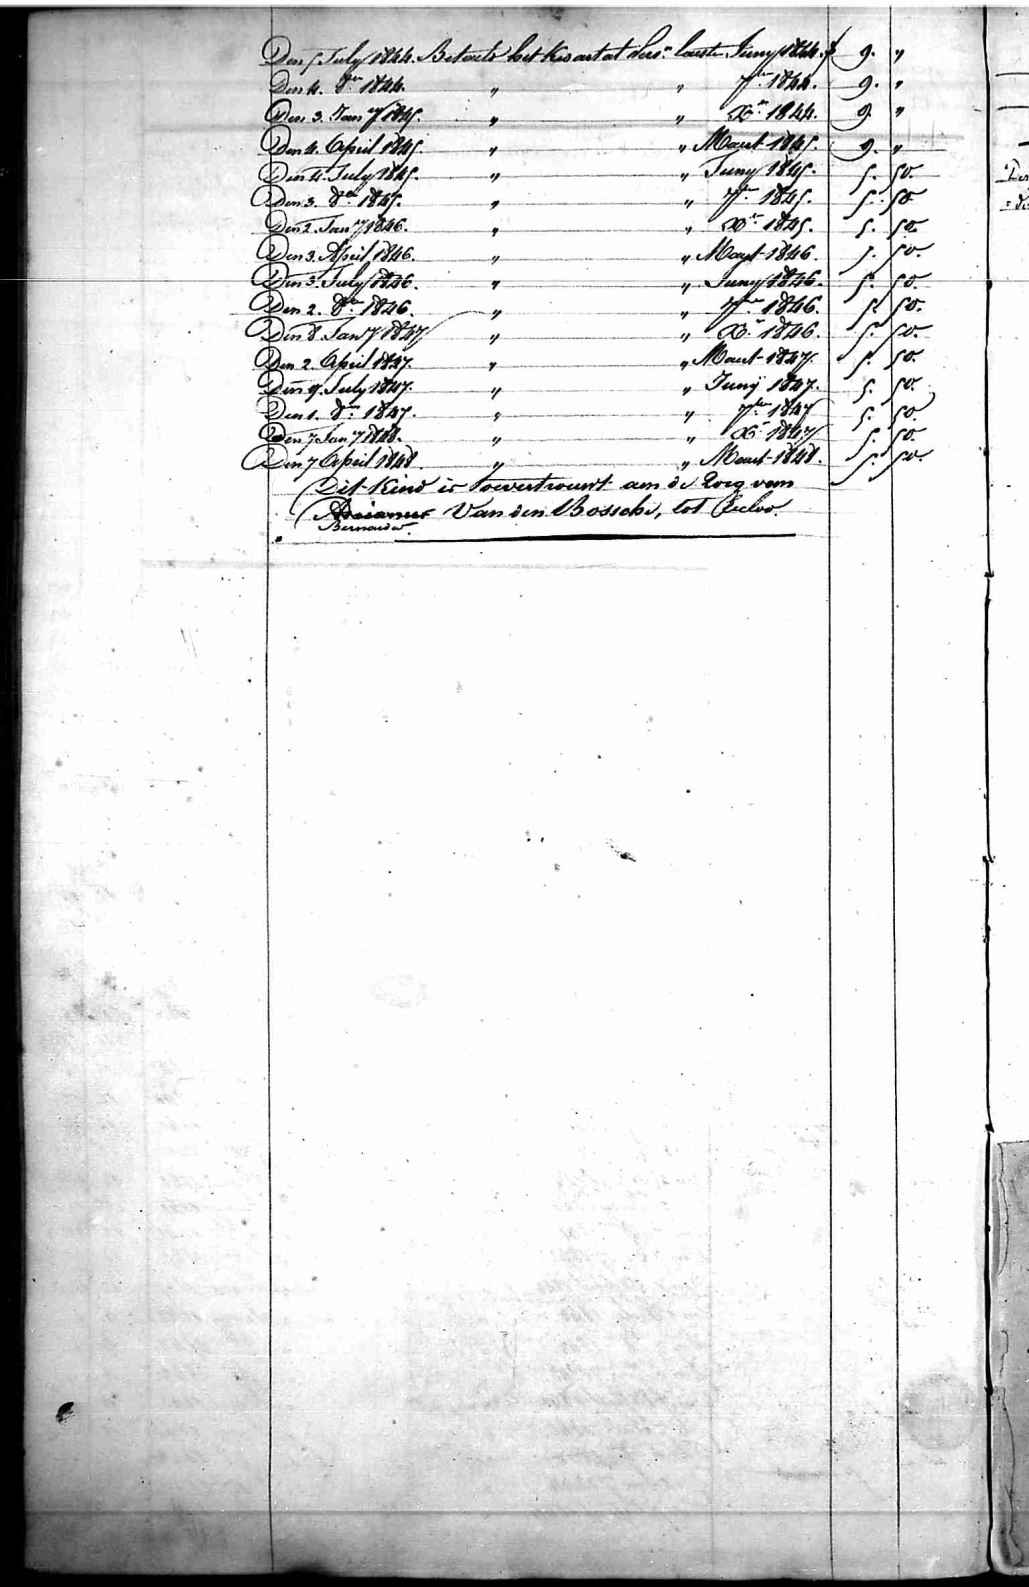 Den 5 July 1844. Betaelt het Kwartal sedert laeste Juny 1844. f 9. "
Den 4. 8ber 1844. " " 7ber 1844. 9. "
Den 3. Jany 1845. " " Xber 1844. 9. "
Den 4. April 1845. " " Maert 1845. 9. "
Den 4. July 1845. " " Juny 1845. 5. 50.
Den 3. 8ber 1845. " " 7ber 1845. 5. 50
Den 2. Jany 1846. " " Xber 1845. 5. 50
Den 3. April 1846. " " Maert 1846. 5. 50.
Den 3. July 1846. " " Juny 1846. 5. 50
Den 2. 8ber 1846. " " 7ber 1846. 5. 50.
Den 8. Jany 1847 " " Xber 1846. 5. 50.
Den 2. April 1847. " " Maert 1847. 5. 50.
Den 9. July 1847. " " Juny 1847. 5. 50.
Den 1. 8ber 1847. " " 7ber 1847 5. 50.
Den 7 Jany 1848. " " Xber 1847 5. 50.
Den 7 April 1848. " " Maert 1848. 5. 50.
Dit Kind is toevertrouwt aen de Zorg van
Van den Bossche, tot Eecloo.
Bernardus